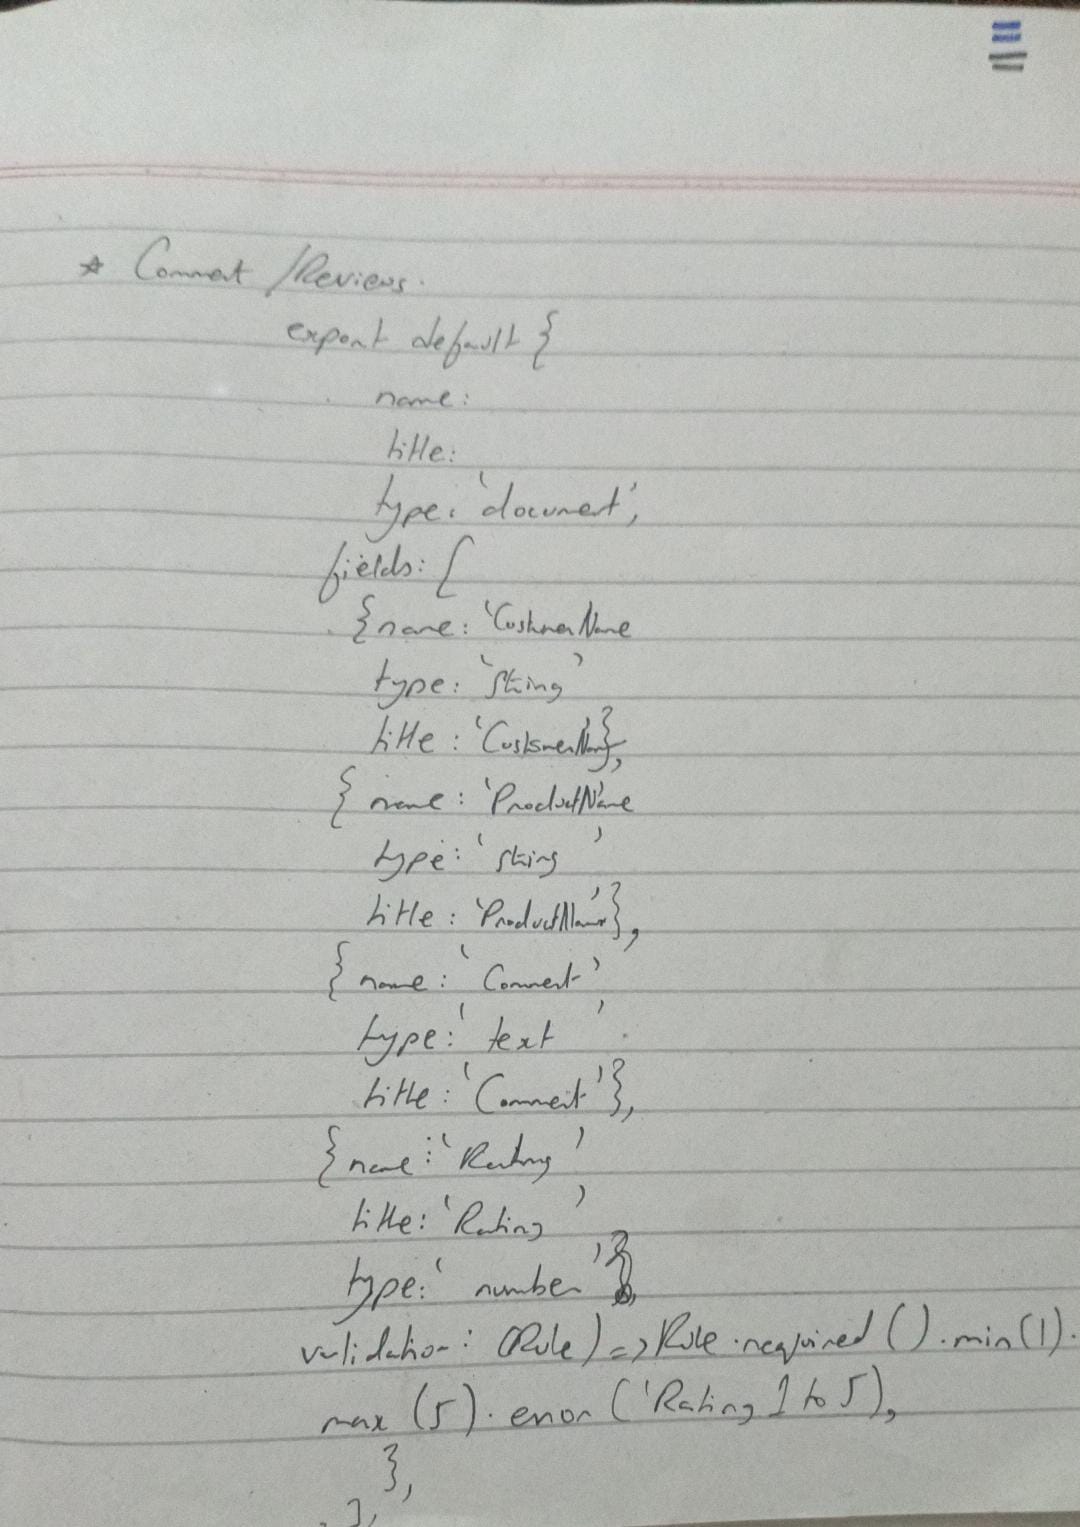 * Comment / Reviews.
export default {
name:
title:
type: 'document',
fields: [
{ name: 'CustomerName
type: 'String'
title: 'CustomerName'},
{ name: 'ProductName
type: 'string'
title: 'ProductName'},
{ name: 'Comment'
type: 'text'
title: 'Comment'},
{ name: 'Rating'
title: 'Rating'
type: 'number'}
validation: (Rule) => Rule.required().min(1).
max (5). error ('Rating 1 to 5),
},
],